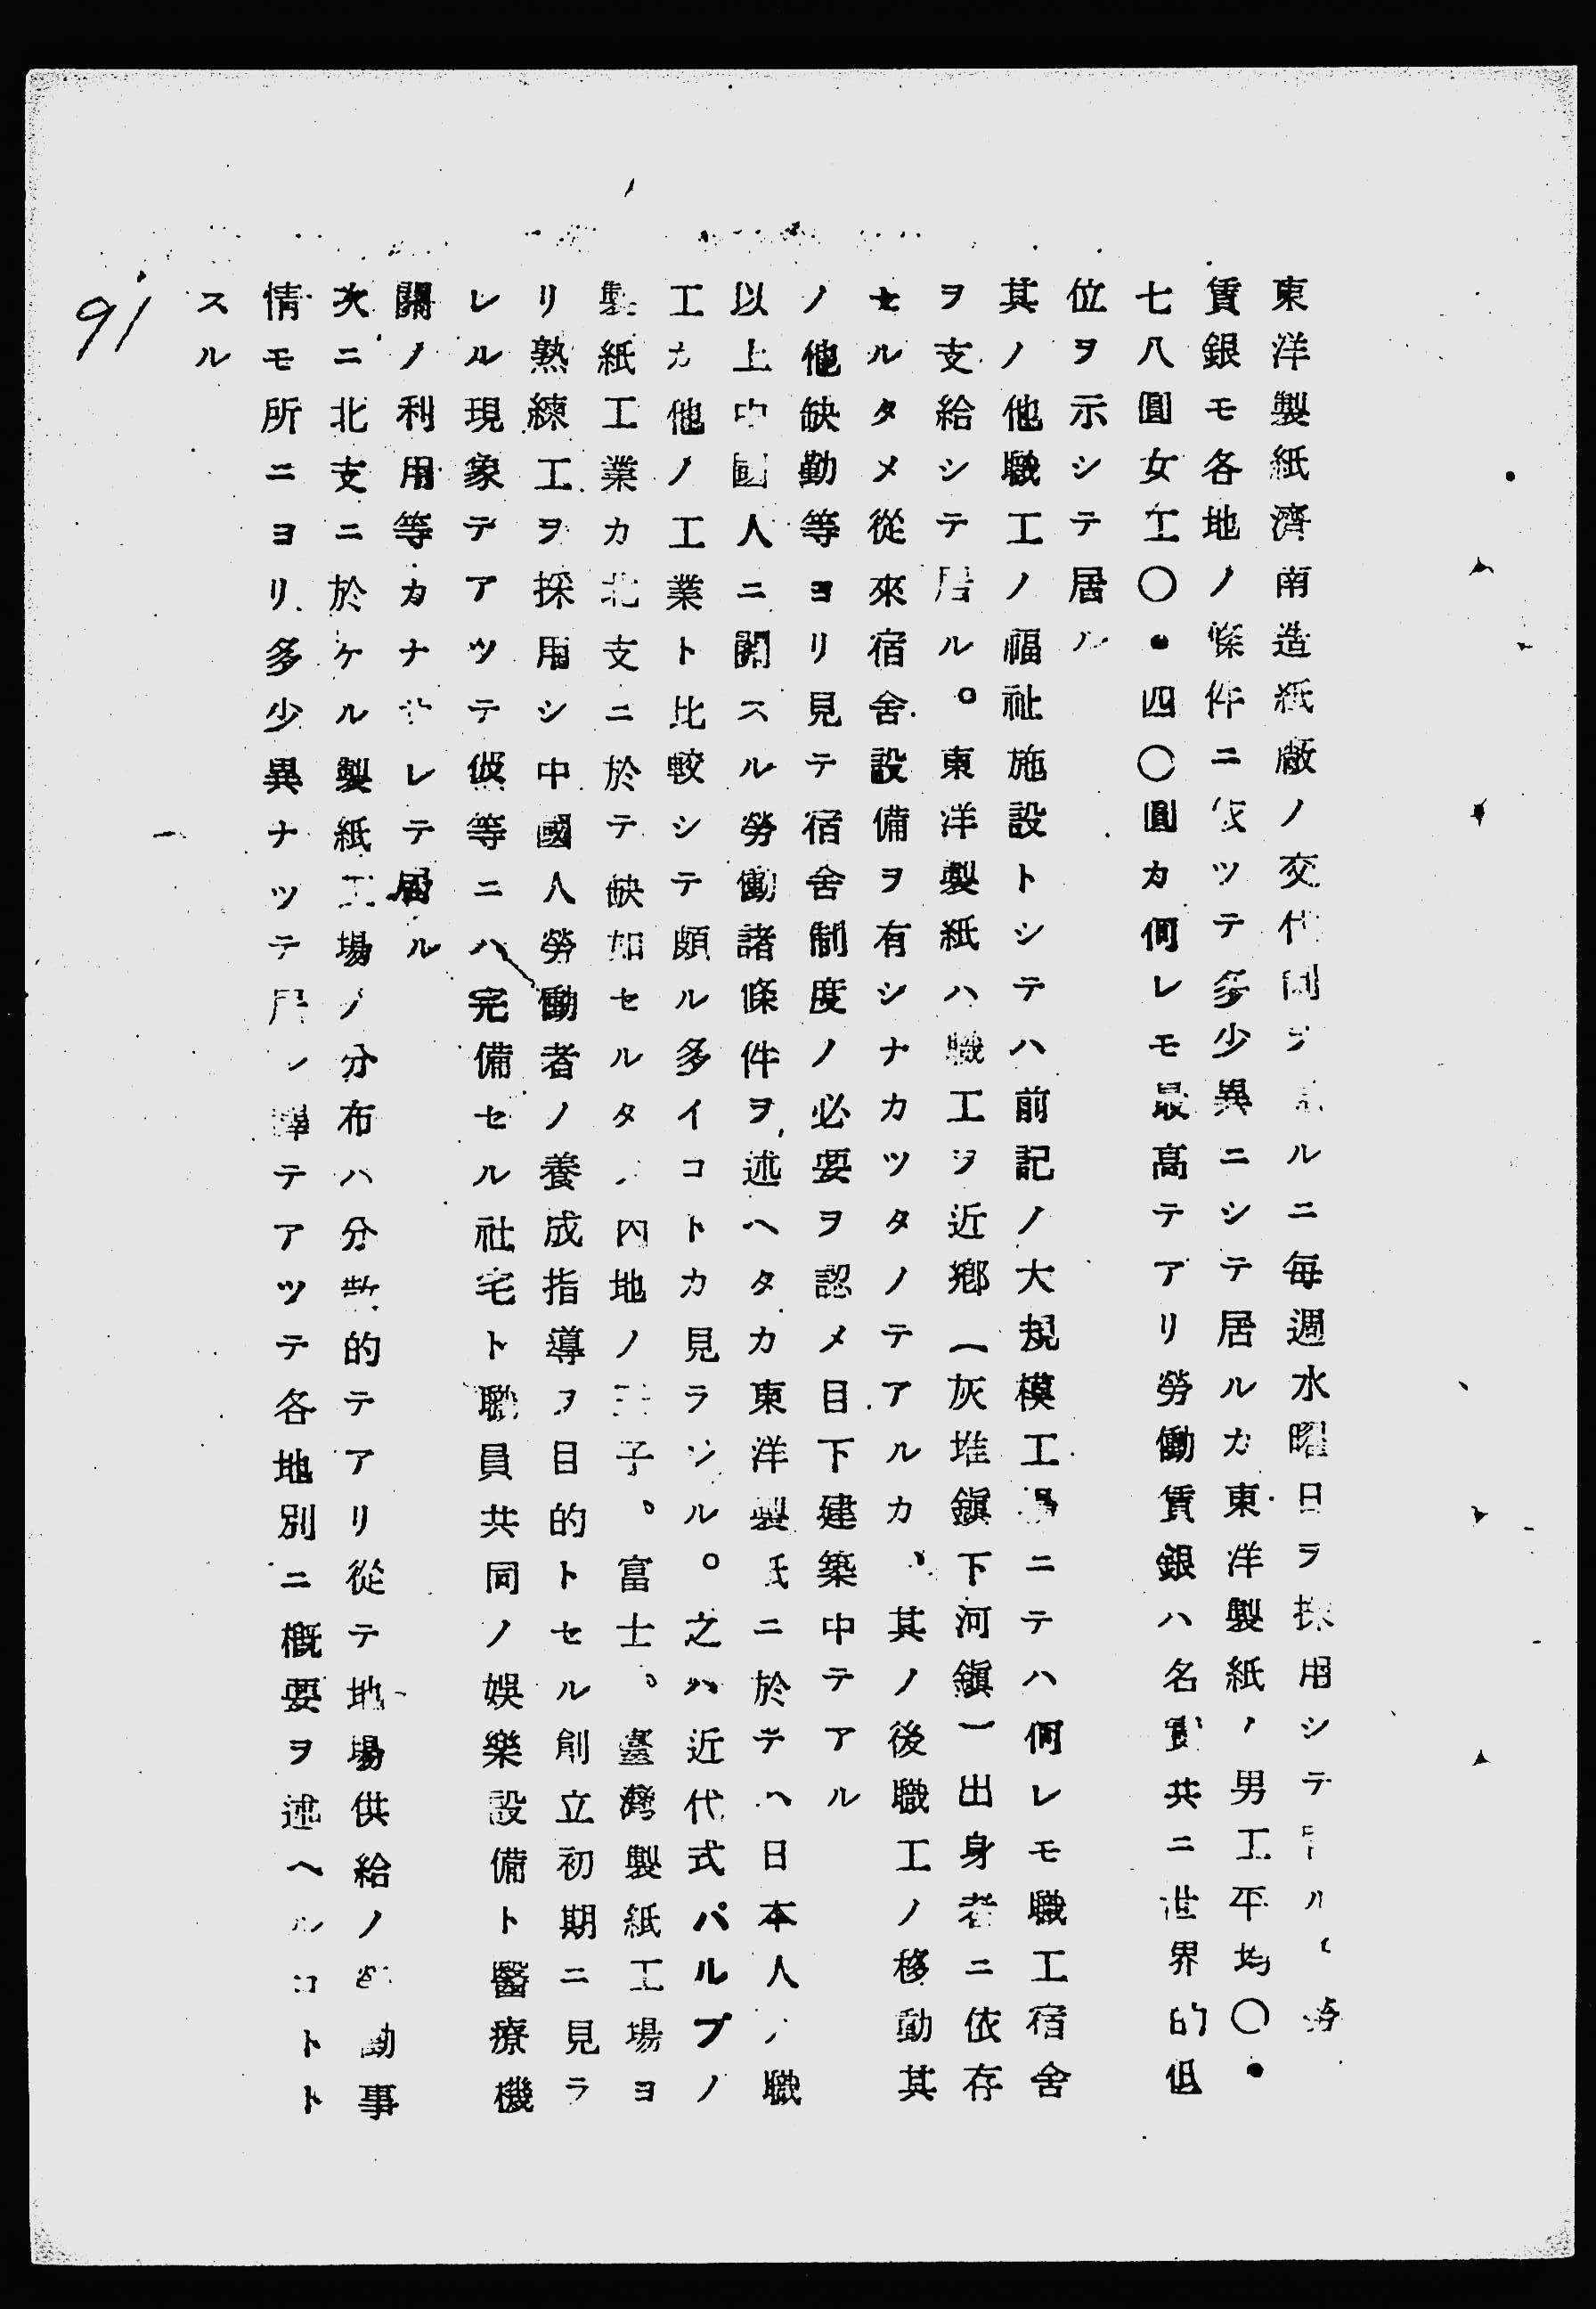 東洋製紙濟南造紙廠ノ交代制ヲ ルニ毎週水曜日ヲ採用シテ居ル、勞
賃銀モ各地ノ條件ニ依ツテ多少異ニシテ居ルカ東洋製紙ノ男工平均〇・
七八圓女工〇・四〇圓カ何レモ最高テアリ勞働賃銀ハ名實共ニ世界的低
位ヲ示シテ居ル
其ノ他職工ノ福祉施設トシテハ前記ノ大規模工場ニテハ何レモ職工宿舍
ヲ支給シテ居ル。東洋製紙ハ職工ヲ近鄕(灰堆鎭下河鎭)出身者ニ依存
セルタメ從來宿舍設備ヲ有シナカツタノテアルカ、其ノ後職工ノ移動其
ノ他缺勤等ヨリ見テ宿舍制度ノ必要ヲ認メ目下建築中テアル
以上中國人ニ關スル勞働諸條件ヲ述ヘタカ東洋製紙ニ於テヘ日本人ノ職
工カ他ノ工業ト比較シテ頗ル多イコトカ見ラレル。之ハ近代式パルプノ
製紙工業カ北支ニ於テ缺如セルタメ內地ノ王子。富士。臺灣製紙工場ヨ
リ熟練工ヲ採用シ中國人勞働者ノ養成指導ヲ目的トセル創立初期ニ見ラ
レル現象テアツテ彼等ニハ完備セル社宅ト職員共同ノ娛樂設備ト醫療機
關ノ利用等カナサレテ居ル
次ニ北支ニ於ケル製紙工場ノ分布ハ分散的テアリ從テ地場供給ノ勞働事
情モ所ニヨリ多少異ナツテ居ル譯テアツテ各地別ニ槪要ヲ述ヘルコトト
スル
91